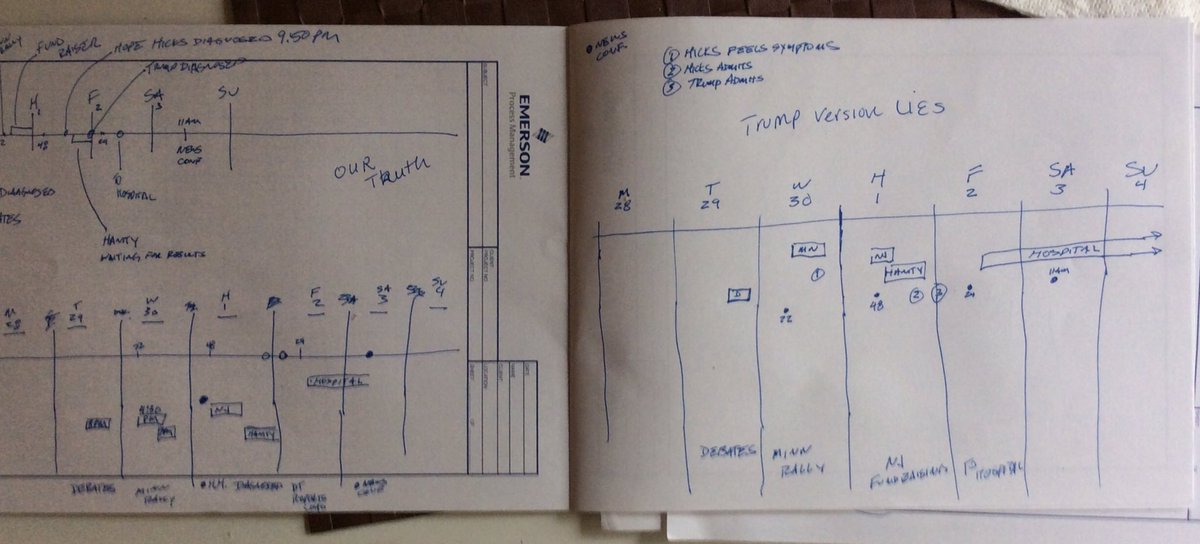 FUND
RAISER
HOPE HICKS DIAGNOSED 9.50 PM
TRUMP DIAGNOSED
H
1
F
2
SA
3
SU
48
24
11AM
NEWS
CONF
HOSPITAL
OUR
TRUTH
DIAGNOSED
HANITY
WAITING FOR RESULTS
EMERSON
Process Management
SUBJECT
CLIENT
PROJECT NO
DATE
NAME
CLIENT
LOCATION
SHEET
OF
M
28
T
29
W
30
H
1
F
2
SA
3
SU
4
72
48
24
HOSPITAL
NJ
HANITY
DEBATES
MINN
RALLY
H.H. DIAGNOSED
NEWS
CONF
NEWS
CONF.
1 HICKS FEELS SYMPTOMS
2 HICKS ADMITS
3 TRUMP ADMITS
Trump version LIES
M
28
T
29
W
30
H
1
F
2
SA
3
SU
4
MN
NJ
HOSPITAL
1
HANITY
11AM
D
2
3
72
48
24
DEBATES
MINN
RALLY
NJ
FUNDRAISING
HOSPITAL